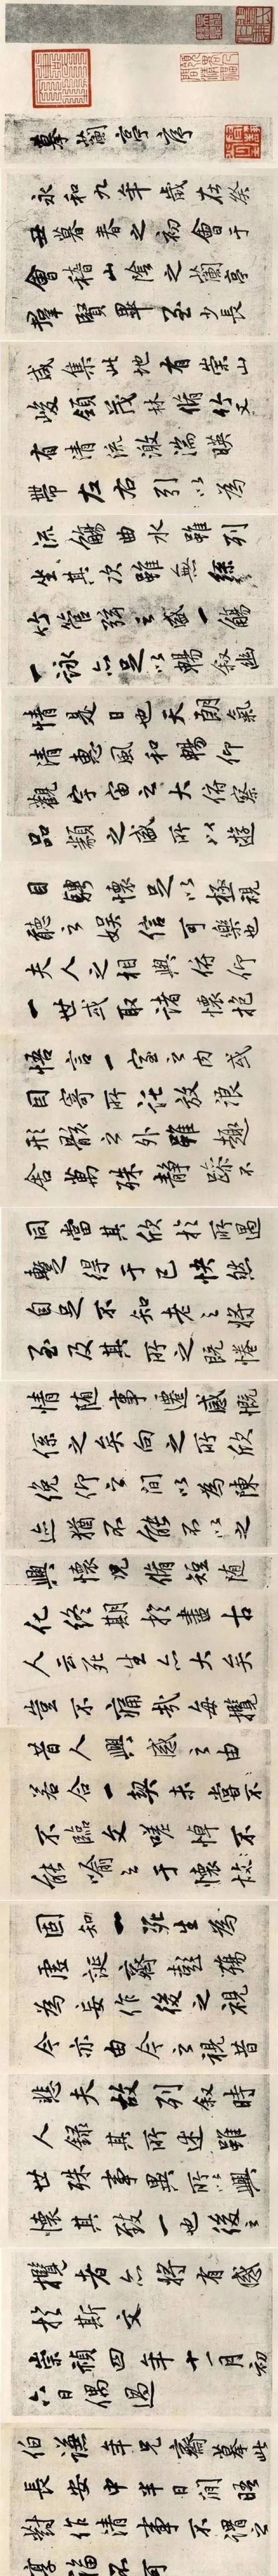 摹蘭亭序
永和九年歲在癸
丑暮春之初會于
會稽山陰之蘭亭
羣賢畢至少長
咸集此地有崇山
峻領茂林脩竹又
有清流激湍暎
帶左右引以為
流觴曲水雖列
坐其次雖無絲
竹管弦之盛一觴
一詠亦足以暢叙幽
情是日也天朗氣
清惠風和暢仰
觀宇宙之大俯察
品類之盛所以遊
目騁懷足以極視
聽之娛信可樂也
夫人之相與俯仰
一世或取諸懷抱
悟言一室之内或
因寄所託放浪
形骸之外雖趣
舍萬殊靜躁不
同當其欣於所遇
蹔得于己快然
自足不知老之將
至及其所之既惓
情随事遷感慨
係之矣向之所欣
俛仰之間以為陳
迹猶不能不以之
興懷況脩短随
化終期於盡古
人云死生亦大矣
豈不痛哉每攬
昔人興感之由
若合一契未嘗不
不臨文嗟悼不
能喻之于懷故
固知一死生為
虛誕齊彭殤
為妄作後之視
今亦由今之視昔
悲夫故列叙時
人錄其所述雖
世殊事異所以興
懷其致一也後之
攬者亦將有感
於斯文
崇禎四年十一月初
六日偶過
伯謙年兄齋摹此
長安中半日閒晤
對作清事不謂之
享福不可